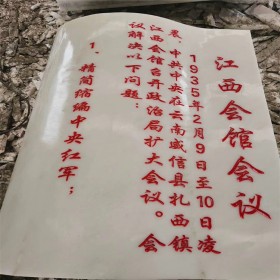 江西会馆会议
1935年2月9日至10日凌
晨，中共中央在云南威信县扎西镇
江西会馆召开政治局扩大会议。会
议解决以下问题：
1、精简缩编中央红军；